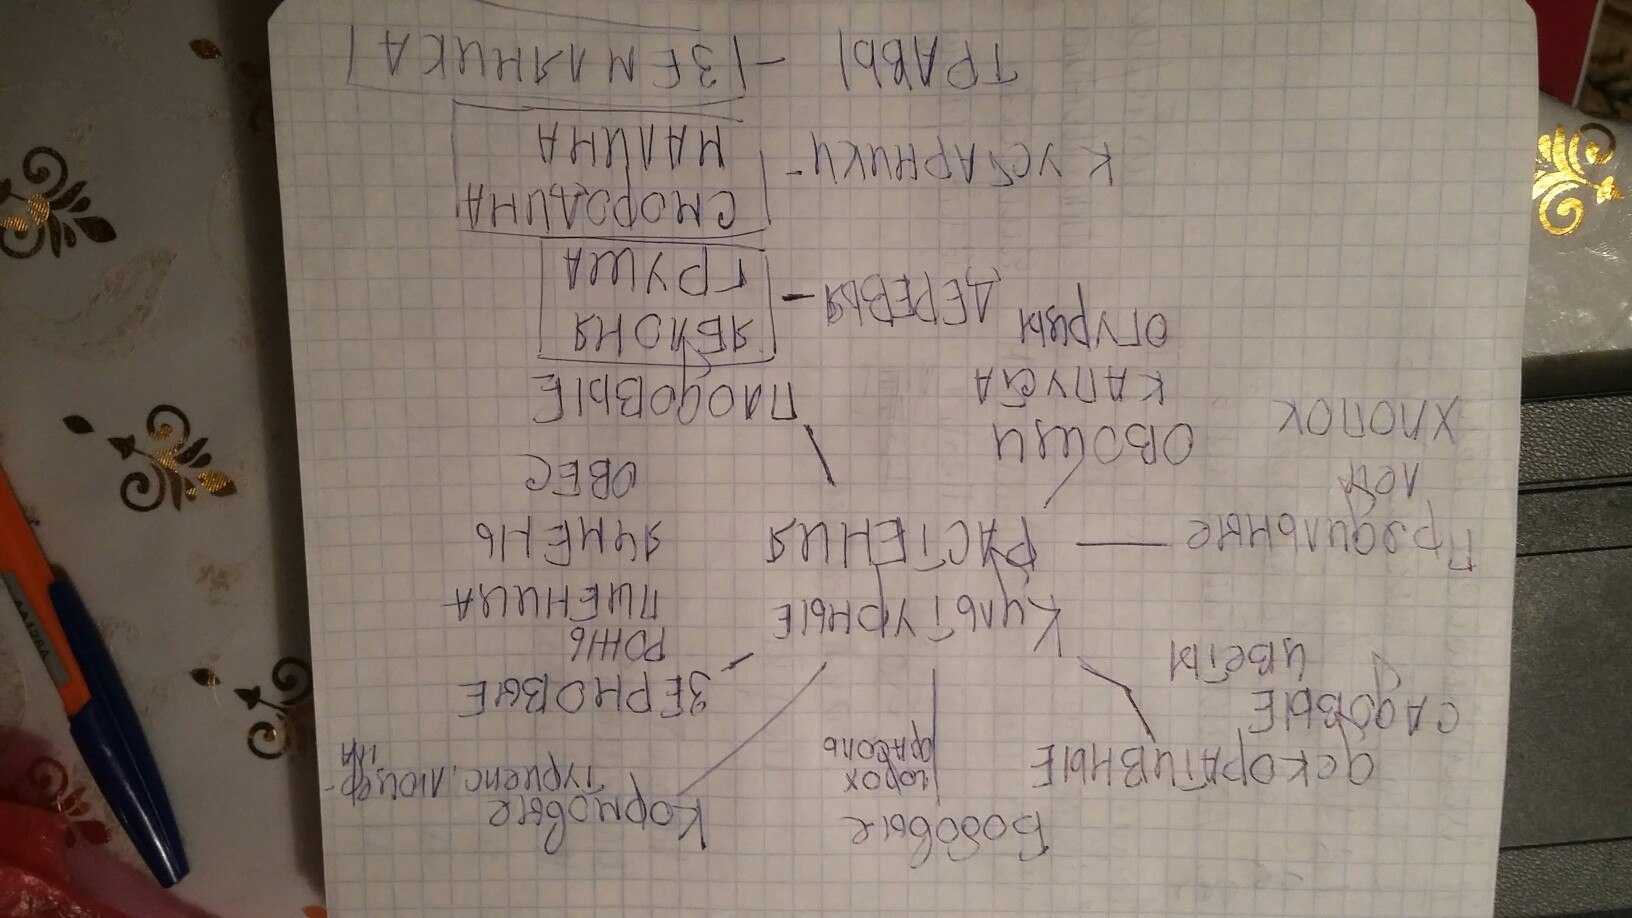 Бобовые
горох
фасоль
Кормовые
турнепс, люцер-
на
декоРАТИВНЫЕ
САДОВЫЕ
ЦВЕТЫ
ЗЕРНОВЫЕ
РОЖЬ
ПШЕНИЦА
ЯЧМЕНЬ
ОВЕС
КУЛЬТУРНЫЕ
РАСТЕНИЯ
Прядильные
лён
ХЛОПОК
ОВОЩИ
КАПУСТА
ОГУРЦЫ
ПЛОДОВЫЕ
ДЕРЕВЬЯ - ЯБЛОНЯ
ГРУША
КУСТАРНИКИ - СМОРОДИНА
МАЛИНА
ТРАВЫ - ЗЕМЛЯНИКА